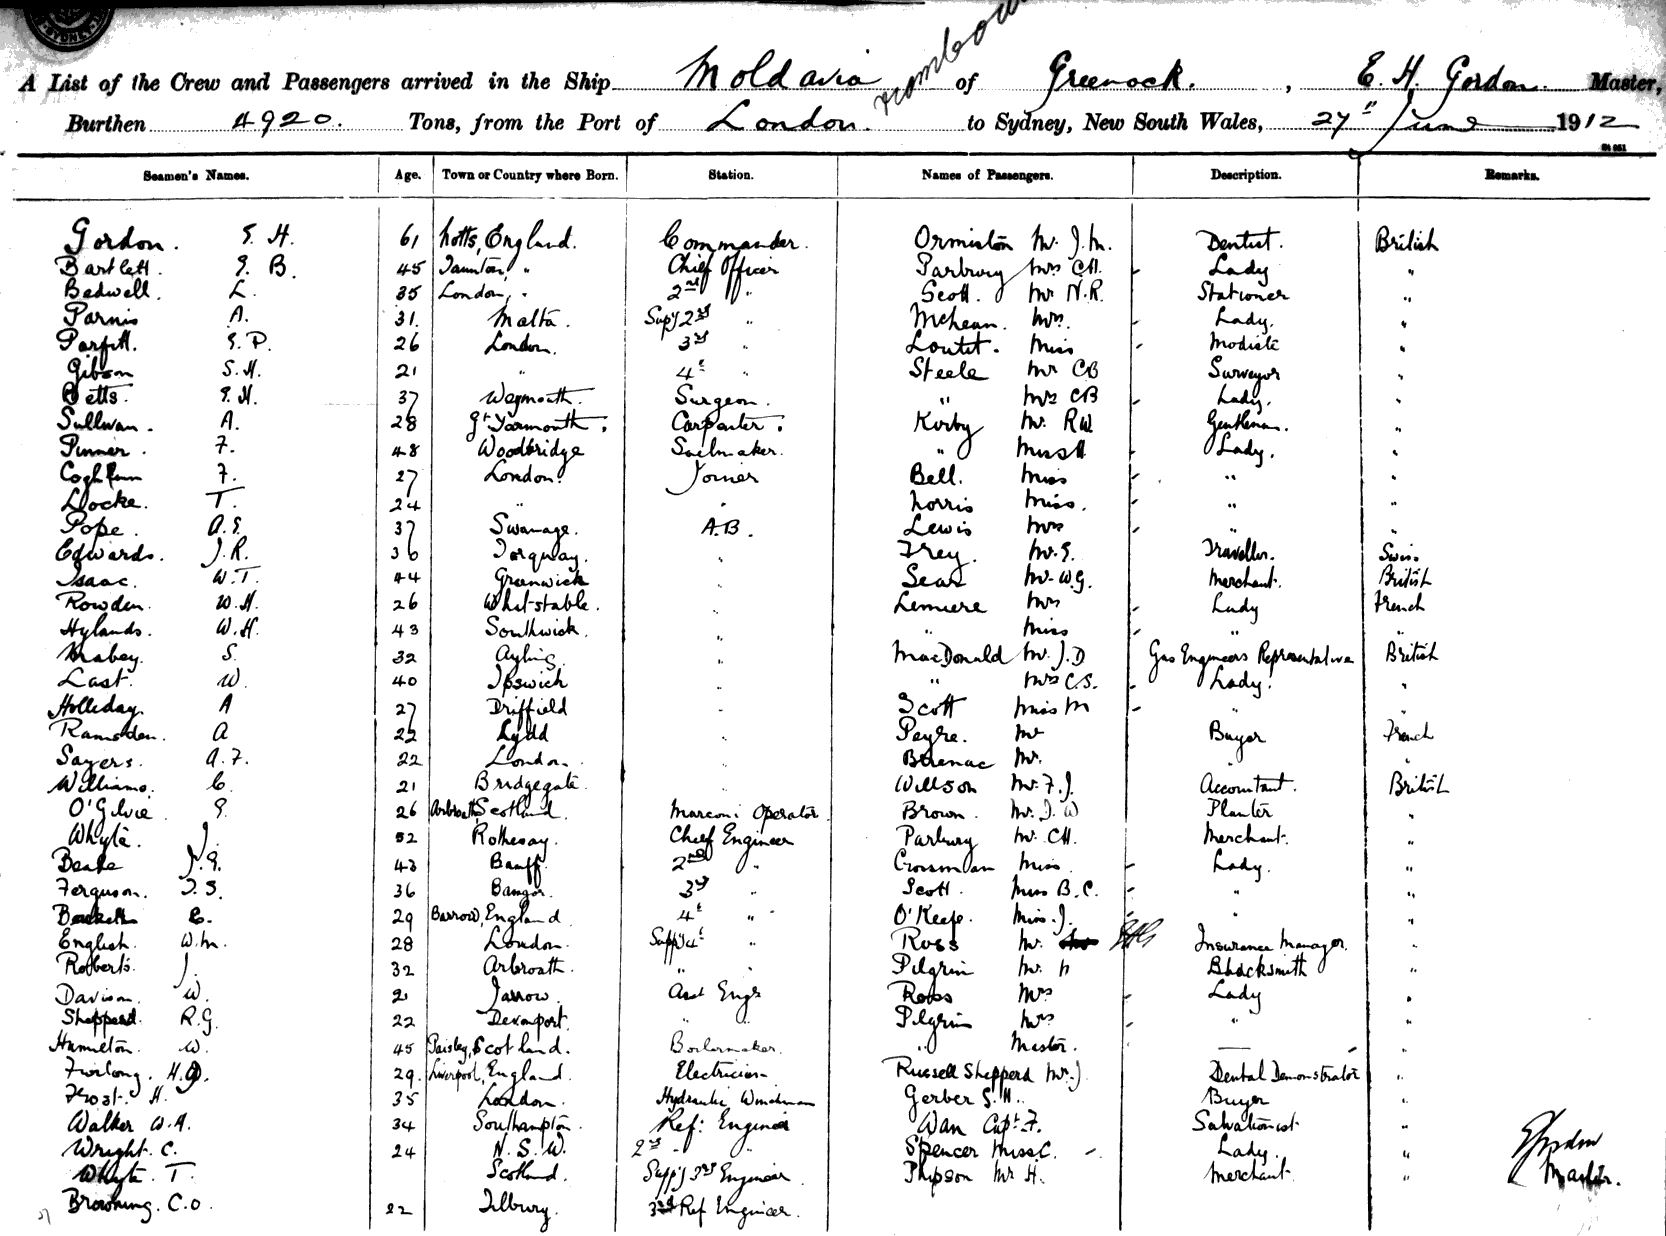 SYDNEY
A List of the Crew and Passengers arrived in the Ship Moldavia of Greenock. , E. H. Gordon. Master,
Burthen 4920. Tons, from the Port of London. to Sydney, New South Wales, 27" June 1912
Seamen's Names. Age. Town or Country where Born. Station. Names of Passengers. Description. Remarks.
Gordon. E. H. 61 Notts, England. Commander. Ormiston Mr. J. M. Dentist. British
Bartlett. E. B. 45 Taunton, " Chief Officer Parbury Mrs CH. Lady "
Bedwell. L. 35 London, " 2nd " Scott. Mr N.R. Stationer "
Parnis A. 31. Malta. Supy 2nd " McLean. Mrs. Lady. "
Parfitt. E. P. 26 London. 3rd " Loutit. Miss Modiste "
Gibson S. H. 21 " 4th " Steele Mr CB Surveyor "
Betts. E. H. 37 Weymouth. Surgeon. " Mrs CB Lady. "
Sullivan. A. 28 Gt Yarmouth. Carpenter. Kirby Mr. RW Gentleman. "
Pinner. F. 48 Woodbridge Sailmaker. " Miss H Lady. "
Coghlan F. 27 London. Joiner Bell. Miss " "
Locke. T. 24 " " Norris Miss. " "
Pope. A. E. 37 Swanage. A.B. Lewis Mrs " "
Edwards. J. R. 36 Torquay. " Frey. Mr. E. Traveller. Swiss
Isaac. W. T. 44 Greenwich " Sear Mr. W.G. Merchant. British
Rowden. W. H. 26 Whitstable. " Lemiere Mrs Lady French
Hylands. W. H. 43 Southwick. " " Miss " "
Mabey. S. 32 Ayling. " MacDonald Mr. J. D Gas Engineers Representative British
Last. W. 40 Ipswich " " Mrs C.S. Lady. "
Holliday. A 27 Driffield " Scott Miss M " "
Ramsden. A 22 Lydd " Peyre. Mr Buyer French
Sayers. A. F. 22 London. " Mr. " "
Williams. C. 21 Bridgegate. " Willson Mr. F. J. Accountant. British
O'Gilvie E. 26 Arbroath, Scotland. Marconi Operator. Brown. Mr. J. W Planter "
Whyte. J. 52 Rothesay. Chief Engineer Parbury Mr. CH. Merchant. "
Beale J. E. 43 Banff. 2nd " Crossman Miss. Lady. "
Ferguson. J. S. 36 Bangor. 3rd " Scott. Miss B. C. " "
Beckett C. 29 Barrow, England. 4th " O'Keefe. Miss. J. " "
English. W. M. 28 London. Supy 4th " Ross Mr. Insurance Manager. "
Roberts. J. 32 Arbroath. " " Pilgrim Mr. H Blacksmith "
Davison. W. 21 Jarrow. Asst Engr Ross Mrs Lady "
Sheppard. R. G. 22 Devonport. " " Pilgrim Mrs. " "
Hamilton. W. 45 Paisley, Scotland. Boilermaker. " Master. — "
Furlong. H. 29. Liverpool, England. Electrician Russell Shepperd Mr. J. Dental Demonstrator "
Frost. H. 35 London. Hydraulic Winchman Gerber S. H. Buyer "
Walker W. A. 34 Southampton. Ref: Engineer Wan Capt. F. Salvationist "
Wright. C. 24 N. S. W. 2nd " Spencer Miss C. Lady. "
Whyte T. Scotland. Supy 3rd Engineer. Phipson Mr H. Merchant. "
Browning. C. O. 22 Tilbury. 3rd Ref Engineer.
EHGordon
Master.